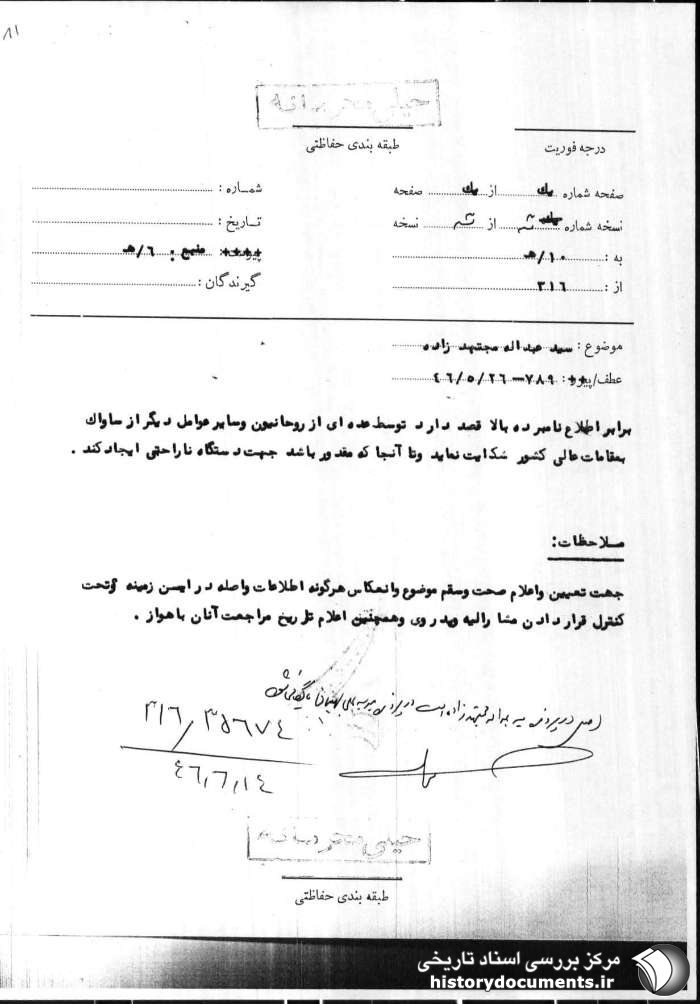 ۸۱
خیلی محرمانه
طبقه بندی حفاظتی
درجه فوریت
صفحه شماره یک از یک صفحه
شماره :
نسخه شماره از نسخه
تاریخ :
به : ۱۰/هـ
منبع : ٦/هـ
از : ۳۱٦
گیرندگان :
موضوع : سید عبداله مجتهد زاده
عطف/پیرو : ۷۸۹-۴٦/۵/۲٦
برابر اطلاع نامبرده بالا قصد دارد توسط عده ای از روحانیون وسایر عوامل دیگر از ساواک
بمقامات عالی کشور شکایت نماید وتا آنجا که مقدور باشد جهت دستگاه ناراحتی ایجاد کند .
ملاحظات :
جهت تعیین واعلام صحت وسقم موضوع وانعکاس هرگونه اطلاعات واصله در این زمینه وتحت
کنترل قرار دادن مشارالیه وپدر وی وهمچنین اعلام تاریخ مراجعت آنان باهواز .
۳۱٦/۳۵٦۷۴
۴٦,٦,۱۴
خیلی محرمانه
طبقه بندی حفاظتی
مرکز بررسی اسناد تاریخی
historydocuments.ir